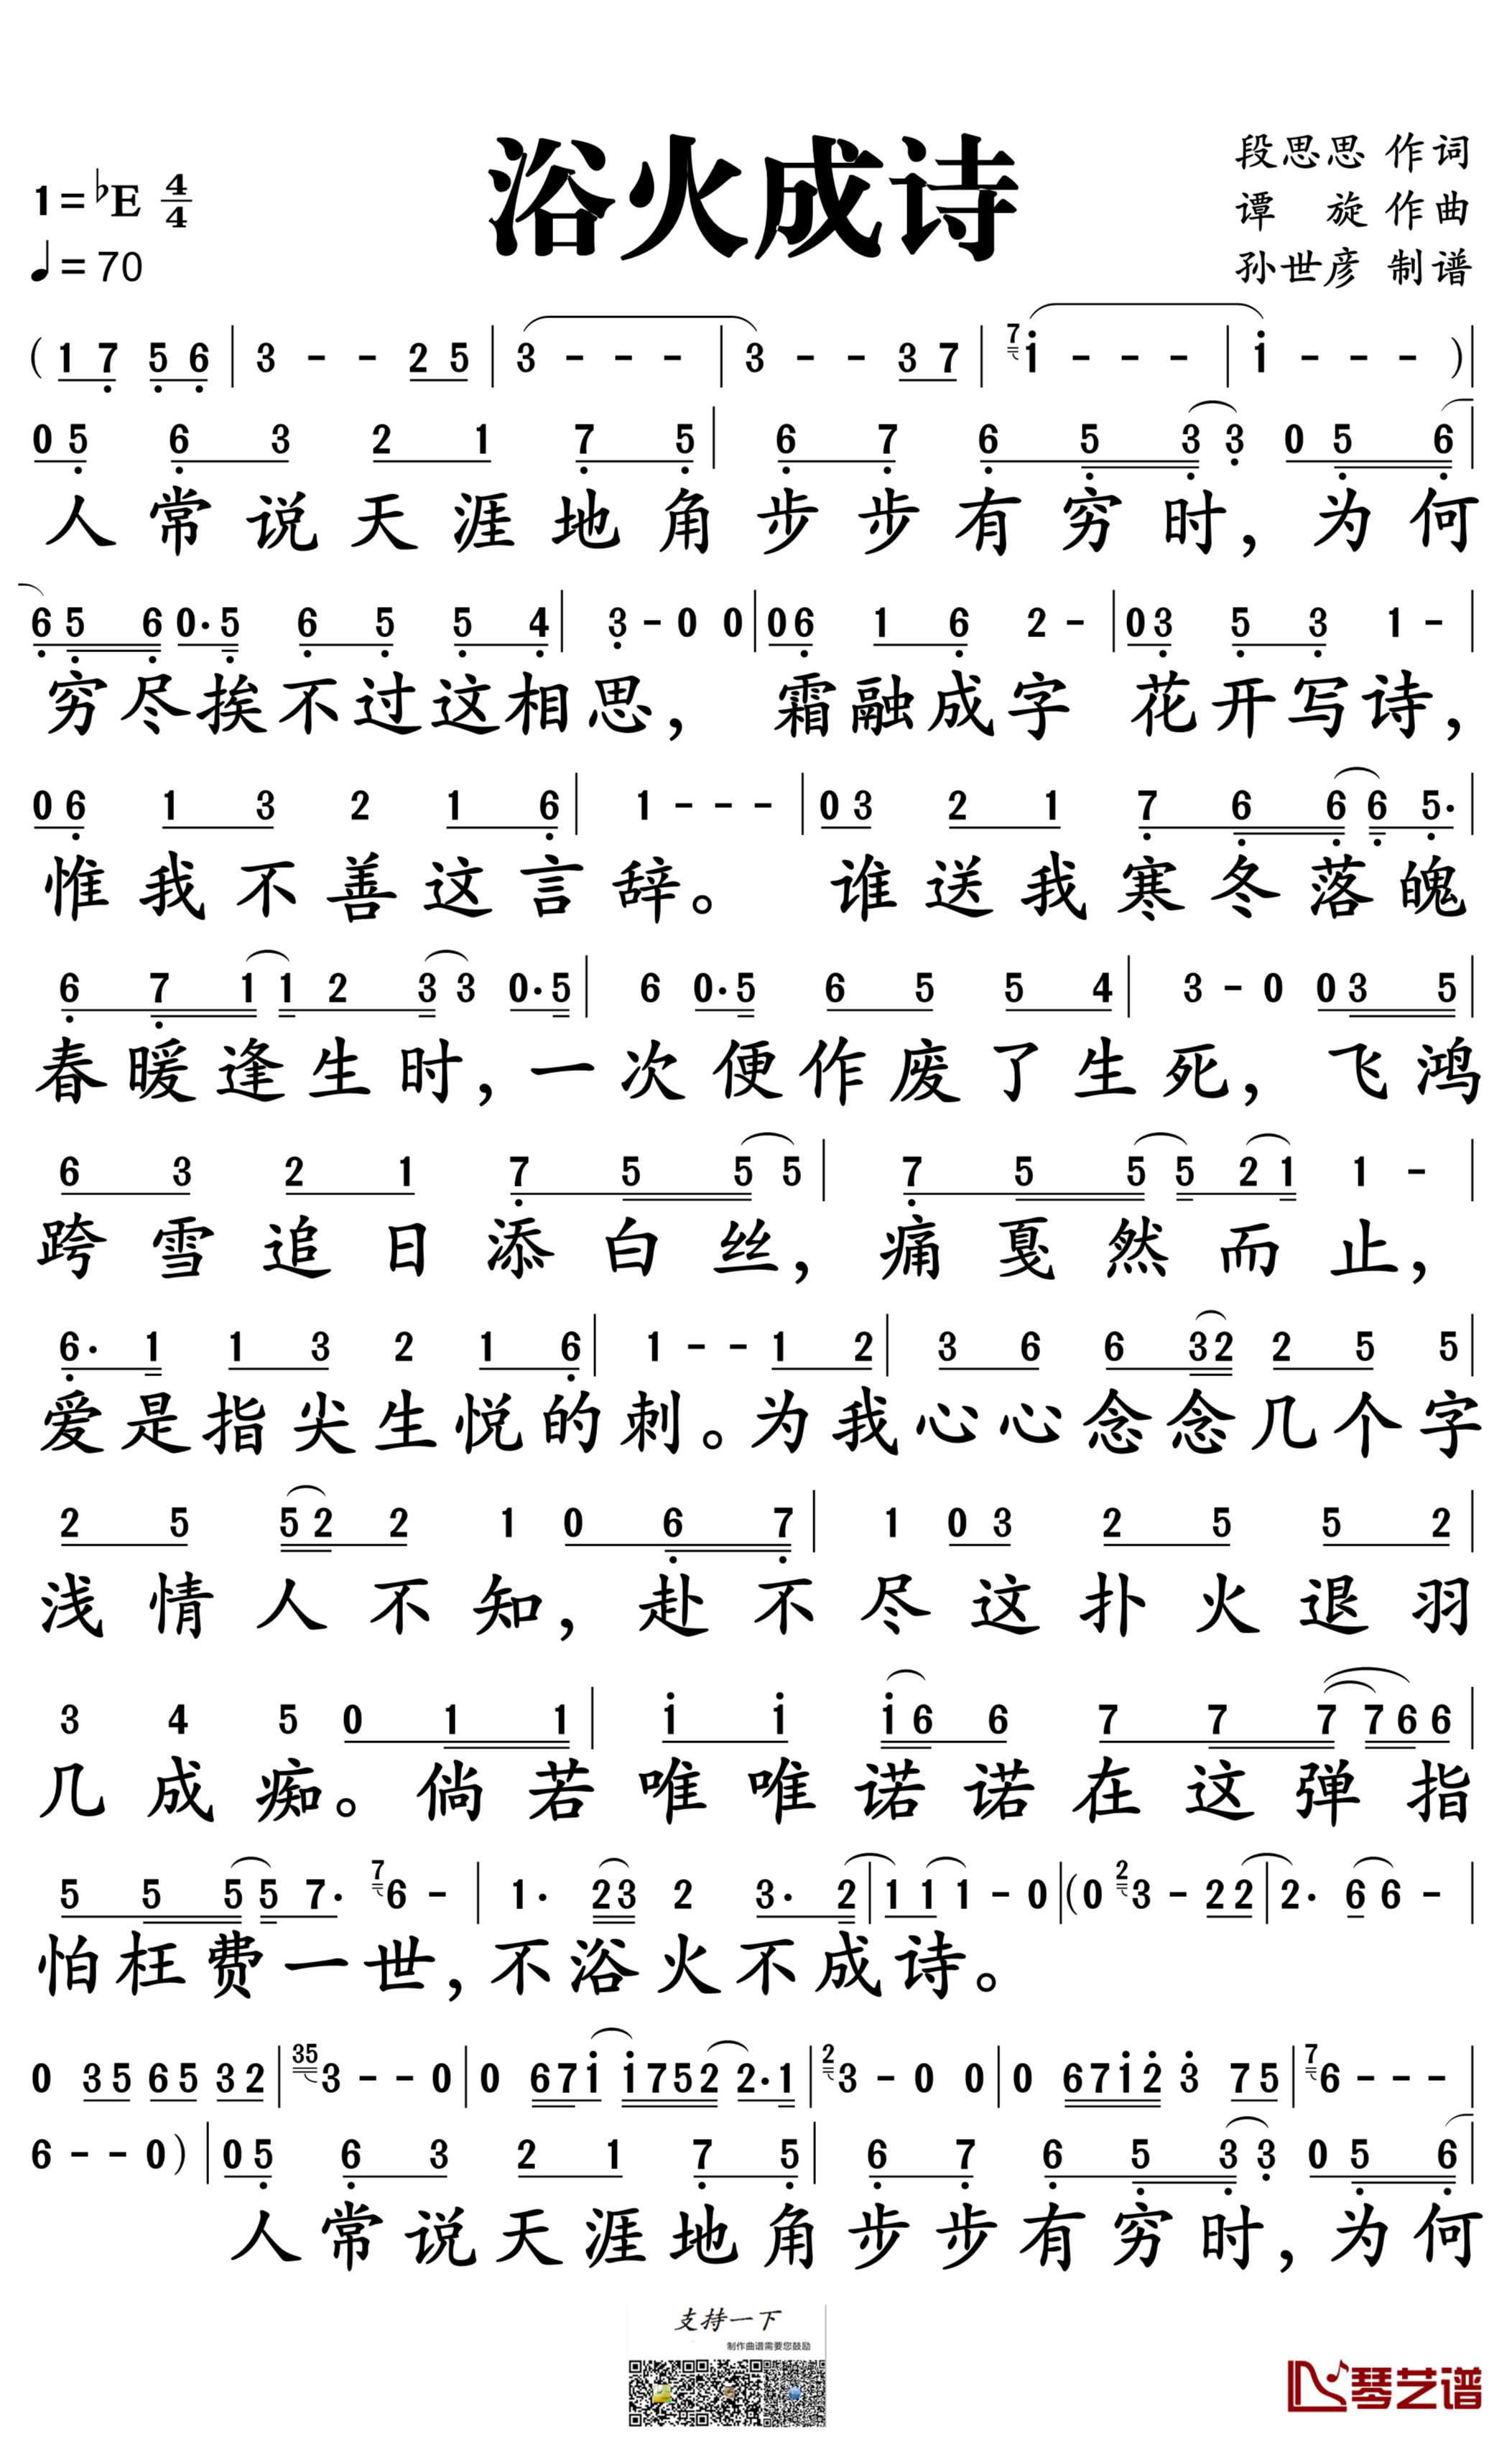 浴火成诗
1=♭E 4/4
♩=70
段思思 作词
谭 旋 作曲
孙世彦 制谱
( 1 7 5 6 | 3 - - 2 5 | 3 - - - | 3 - - 3 7 | 7 i - - - | i - - - ) |
0 5 6 3 2 1 7 5 | 6 7 6 5 3 3 0 5 6 |
人常说天涯地角步步有穷时,为何
6 5 6 0·5 6 5 5 4 | 3 - 0 0 | 0 6 1 6 2 - | 0 3 5 3 1 - |
穷尽挨不过这相思, 霜融成字 花开写诗,
0 6 1 3 2 1 6 | 1 - - - | 0 3 2 1 7 6 6 6 5· |
惟我不善这言辞。 谁送我寒冬落魄
6 7 1 1 2 3 3 0·5 | 6 0·5 6 5 5 4 | 3 - 0 0 3 5 |
春暖逢生时,一次便作废了生死, 飞鸿
6 3 2 1 7 5 5 5 | 7 5 5 5 2 1 1 - |
跨雪追日添白丝,痛戛然而止,
6· 1 1 3 2 1 6 | 1 - - 1 2 | 3 6 6 3 2 2 5 5 |
爱是指尖生悦的刺。为我心心念念几个字
2 5 5 2 2 1 0 6 7 | 1 0 3 2 5 5 2 |
浅情人不知,赴不尽这扑火退羽
3 4 5 0 1 1 | i i i 6 6 7 7 7 7 6 6 |
几成痴。倘若唯唯诺诺在这弹指
5 5 5 5 7· 7 6 - | 1· 2 3 2 3· 2 | 1 1 1 - 0 | ( 0 2 3 - 2 2 | 2· 6 6 - |
怕枉费一世,不浴火不成诗。
0 3 5 6 5 3 2 | 35 3 - - 0 | 0 6 7 i i 7 5 2 2·1 | 2 3 - 0 0 | 0 6 7 i 2 3 7 5 | 7 6 - - - |
6 - - 0 ) | 0 5 6 3 2 1 7 5 | 6 7 6 5 3 3 0 5 6 |
人常说天涯地角步步有穷时,为何
支持一下
制作曲谱需要您鼓励
琴艺谱